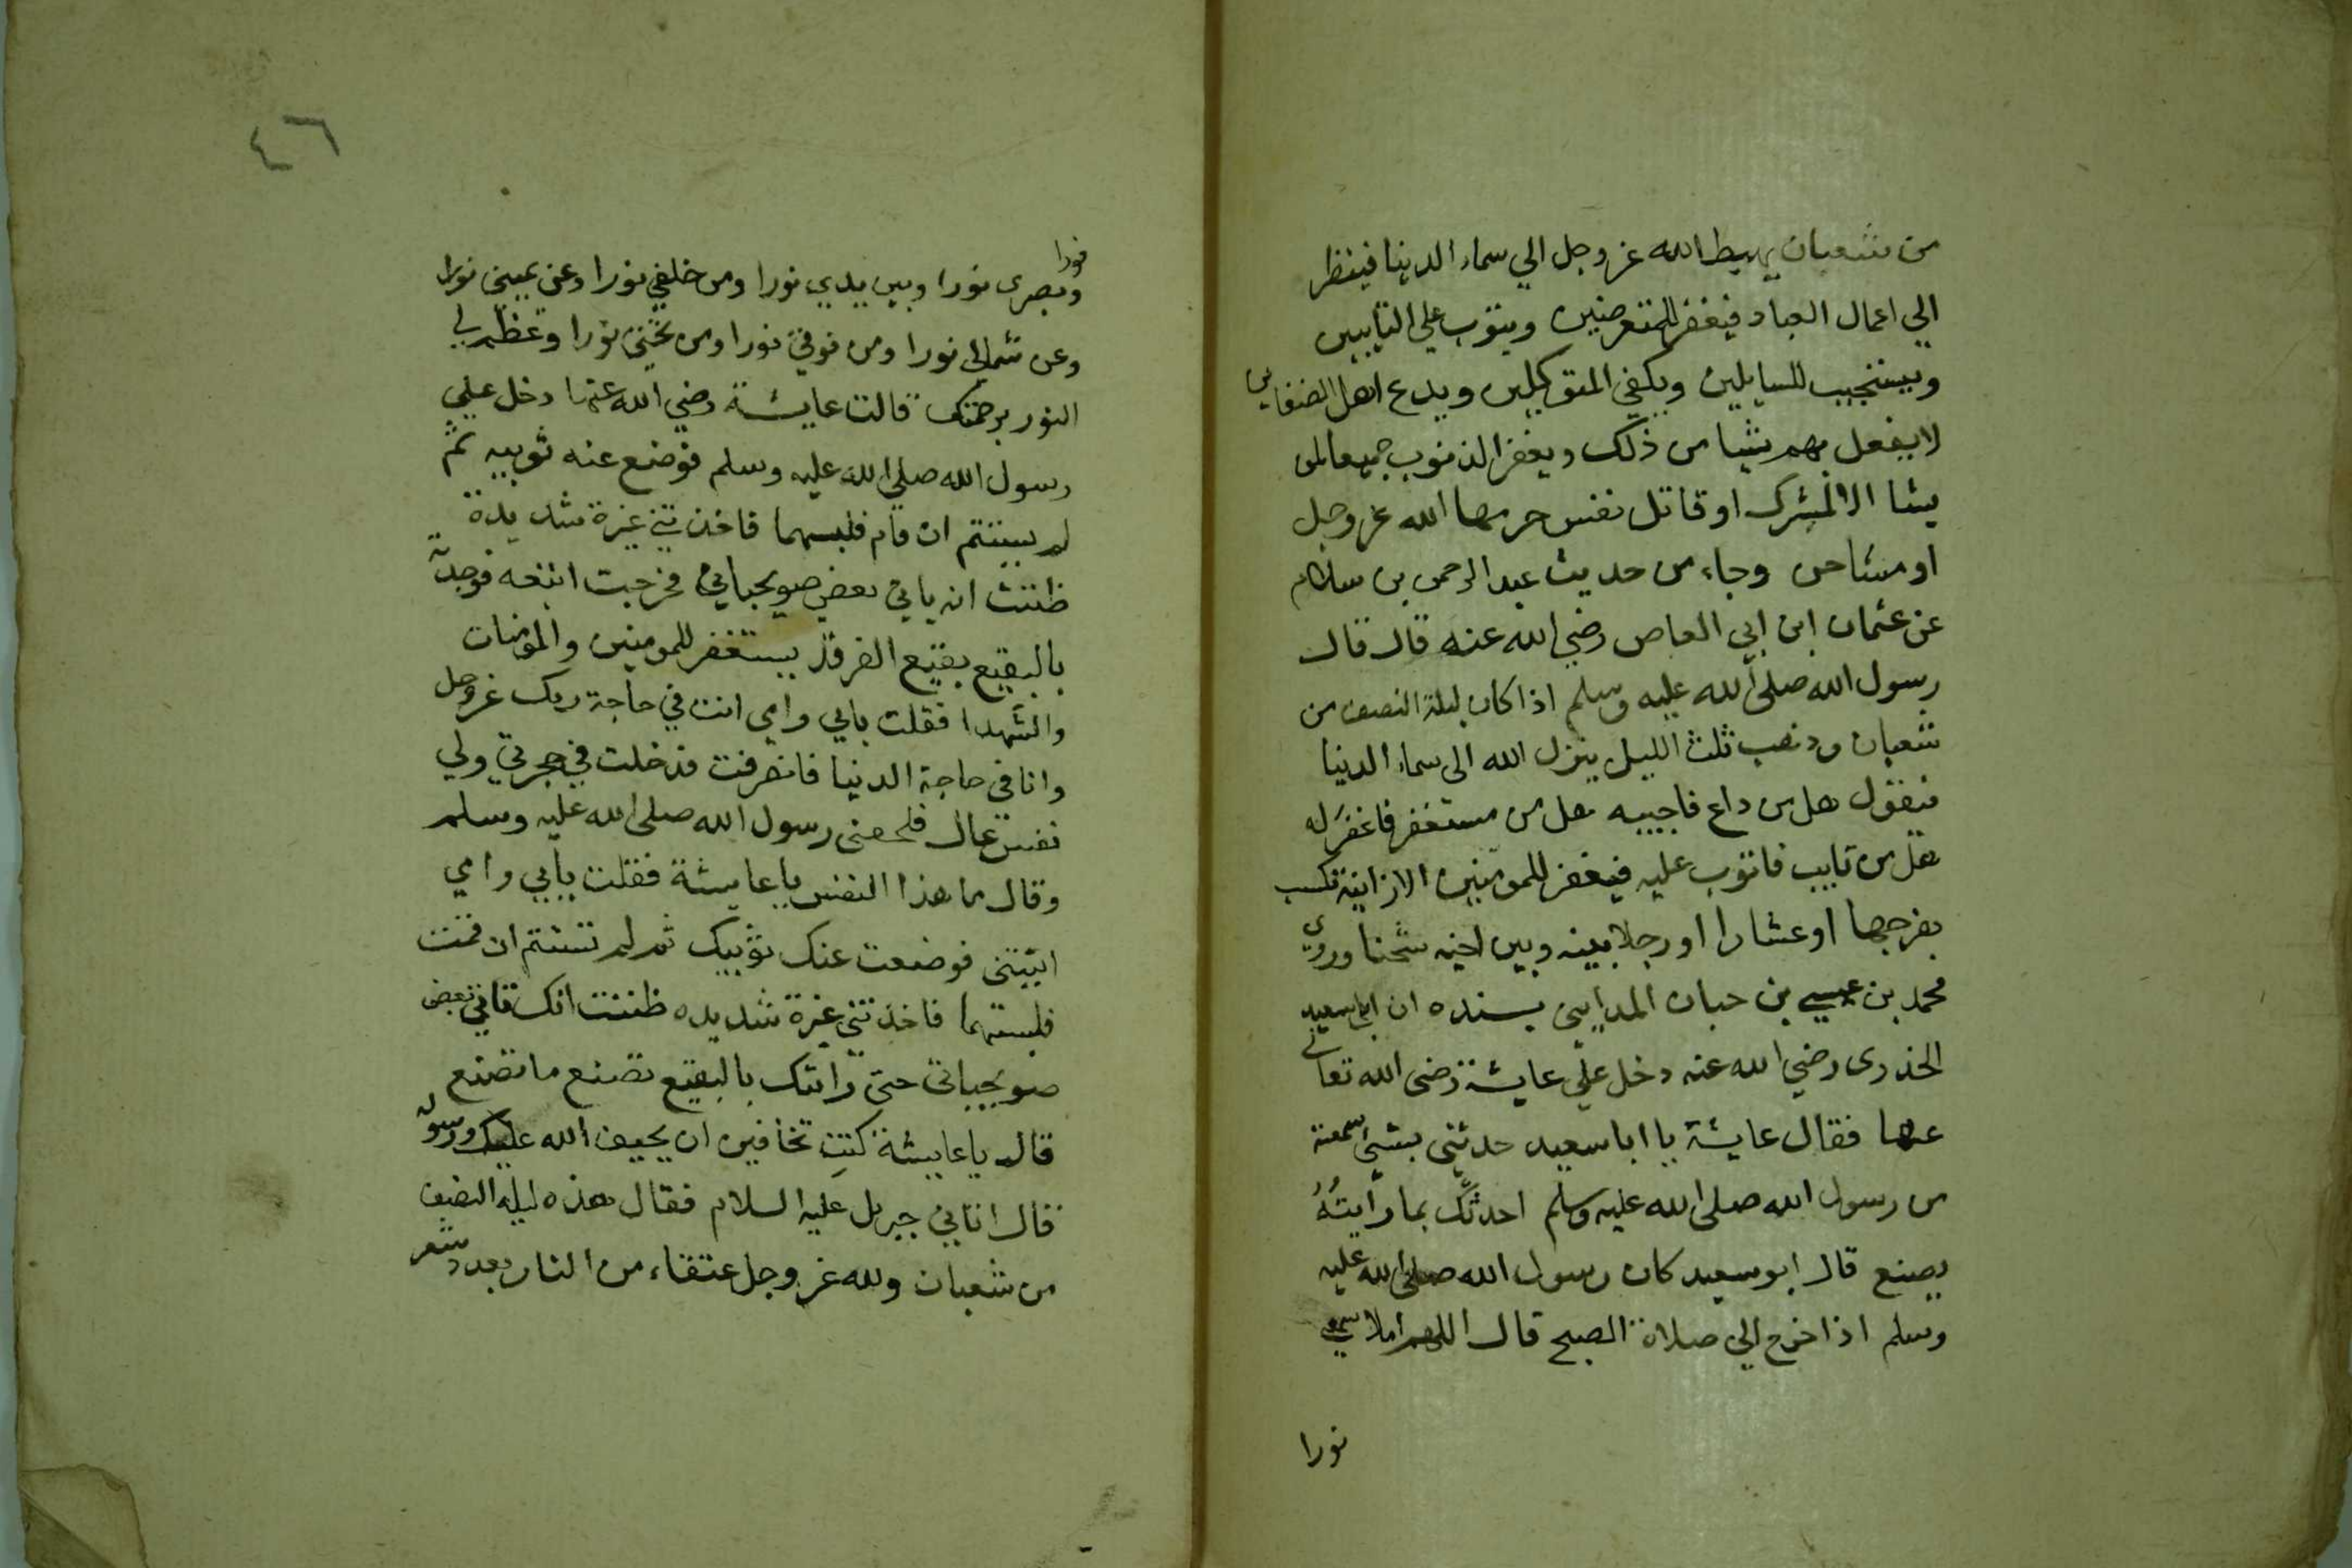 من شعبان يهبط الله عز وجل الي سماء الدنيا فينظر
الي اعمال العباد فيغفر للمتعرضين ويتوب علي التايبين
ويستجيب للسايلين ويكفي المتوكلين ويدع اهل الضغاين
لا يفعل بهم شيا من ذلك ويغفر الذنوب جميعا لمن
يشا الا لمشرك او قاتل نفس حرمها الله عز وجل
او مشاحن وجاء من حديث عبد الرحمن بن سلام
عن عثمان ابن ابي العاص رضي الله عنه قال قال
رسول الله صلى الله عليه وسلم اذا كان ليلة النصف من
شعبان وذهب ثلث الليل ينزل الله الى سماء الدنيا
فيقول هل من داع فاجيبه هل من مستغفر فاغفر له
هل من تايب فاتوب عليه فيغفر للمومنين الا زانية تكسب
بفرجها او عشارا او رجلا بينه وبين اخيه شحنا وروي
محمد بن عيسي بن حبان المدايني بسنده ان ابا سعيد
الخدري رضي الله عنه دخل علي عايشة رضى الله تعالى
عنها فقال عايشة يا ابا سعيد حدثني بشئ سمعته
من رسول الله صلى الله عليه وسلم احدثك بما رايته
يصنع قال ابو سعيد كان رسول الله صلى الله عليه
وسلم اذا خرج الي صلاة الصبح قال اللهم املا سمعي
نورا
٤٦
نورا
وبصرى نورا وبين يدي نورا ومن خلفي نورا وعن يميني نورا
وعن شمالي نورا ومن فوقي نورا ومن تحتي نورا وعظم لي
النور برحمتك قالت عايشة رضي الله عنها دخل علي
رسول الله صلي الله عليه وسلم فوضع عنه ثوبيه ثم
لم يستتم ان قام فلبسهما فاخذتني غيرة شديدة
ظننت انه ياتي بعض صويحباتي فخرجت اتبعه فوجدته
بالبقيع بقيع الغرقد يستغفر للمومنين والمومنات
والشهدا فقلت بابي وامي انت في حاجة ربك عز وجل
وانا في حاجة الدنيا فانصرفت فدخلت في حجرتي ولي
نفس عال فلحقني رسول الله صلى الله عليه وسلم
وقال ما هذا النفس يا عايشة فقلت بابي وامي
اتيتني فوضعت عنك ثوبيك ثم لم تستتم ان قمت
فلبستهما فاخذتني غيرة شديده ظننت انك تاتي بعض
صويحباتي حتى رايتك بالبقيع تصنع ما تصنع
قال يا عايشة كنت تخافين ان يحيف الله عليك ورسوله
قال اتاني جبريل عليه السلام فقال هذه ليلة النصف
من شعبان ولله عز وجل عتقاء من النار بعدد شعر